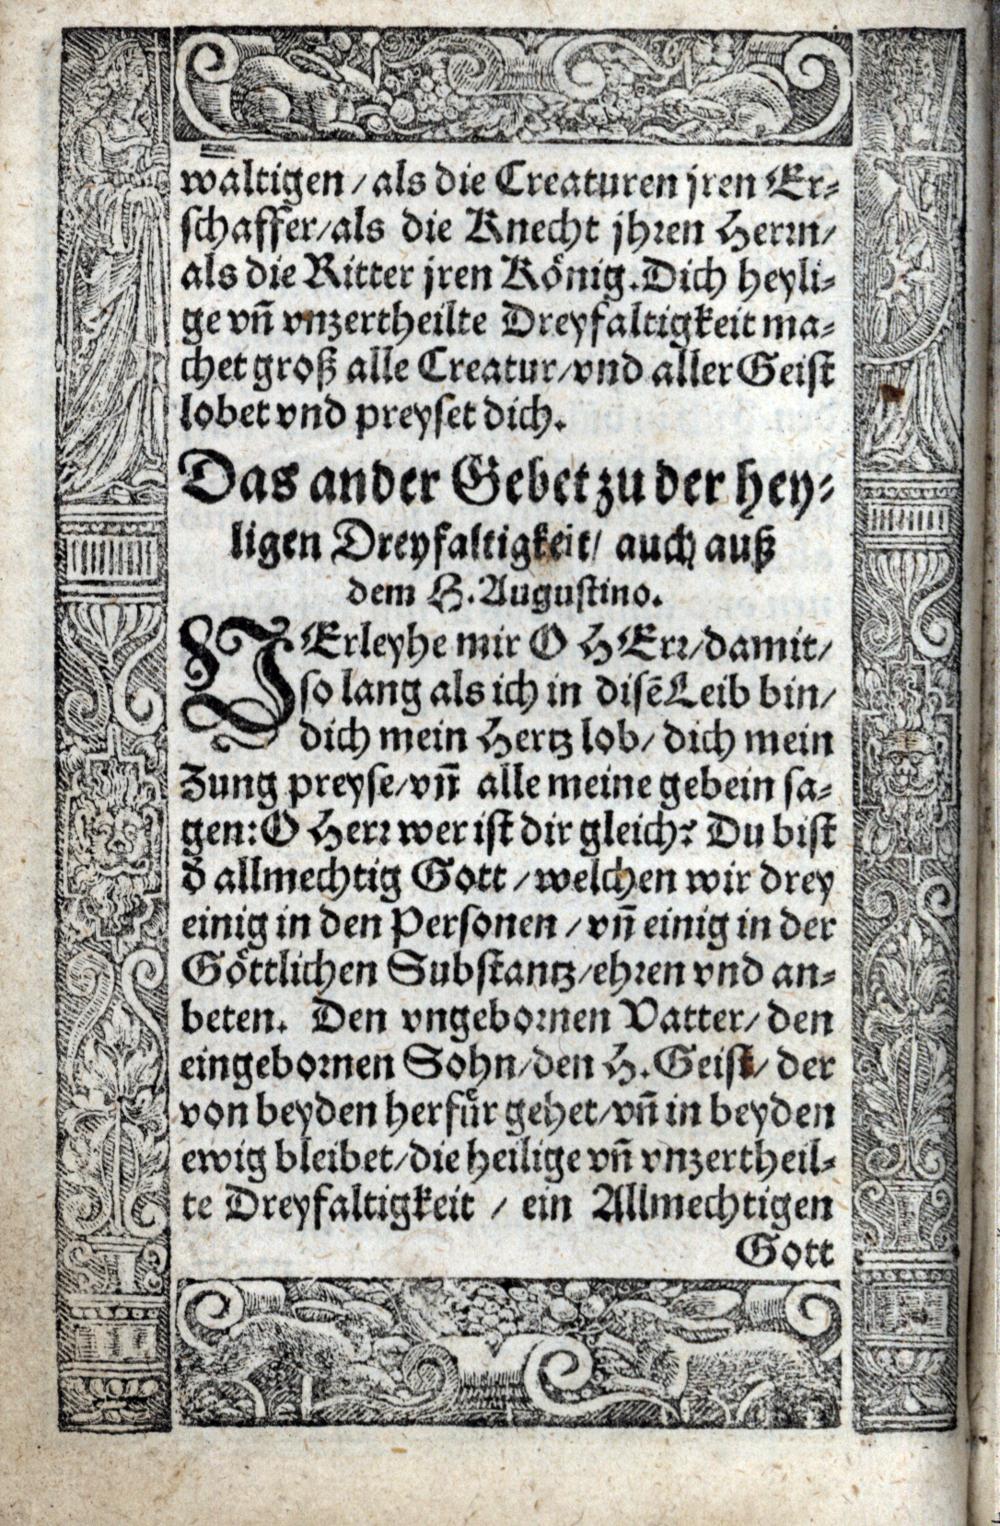 waltigen / als die Creaturen jren Er⸗
schaffer/als die Knecht jhren Herrn/
als die Ritter jren König. Dich heyli⸗
ge vñ vnzertheilte Dreyfaltigkeit ma⸗
chet groß alle Creatur/vnd aller Geist
lobet vnd preyset dich.
Das ander Gebet zu der hey⸗
ligen Dreyfaltigkeit/ auch auß
dem H. Augustino.
VErleyhe mir O HErr/damit/
so lang als ich in disẽ Leib bin/
dich mein Hertz lob/ dich mein
Zung preyse/vñ alle meine gebein sa⸗
gen: O Herr wer ist dir gleich? Du bist
d̕ allmechtig Gott /welchen wir drey
einig in den Personen /vñ einig in der
Göttlichen Substantz/ehren vnd an⸗
beten. Den vngebornen Vatter/ den
eingebornen Sohn/den H. Geist/ der
von beyden herfür gehet/vñ in beyden
ewig bleibet/die heilige vñ vnzertheil⸗
te Dreyfaltigkeit / ein Allmechtigen
Gott